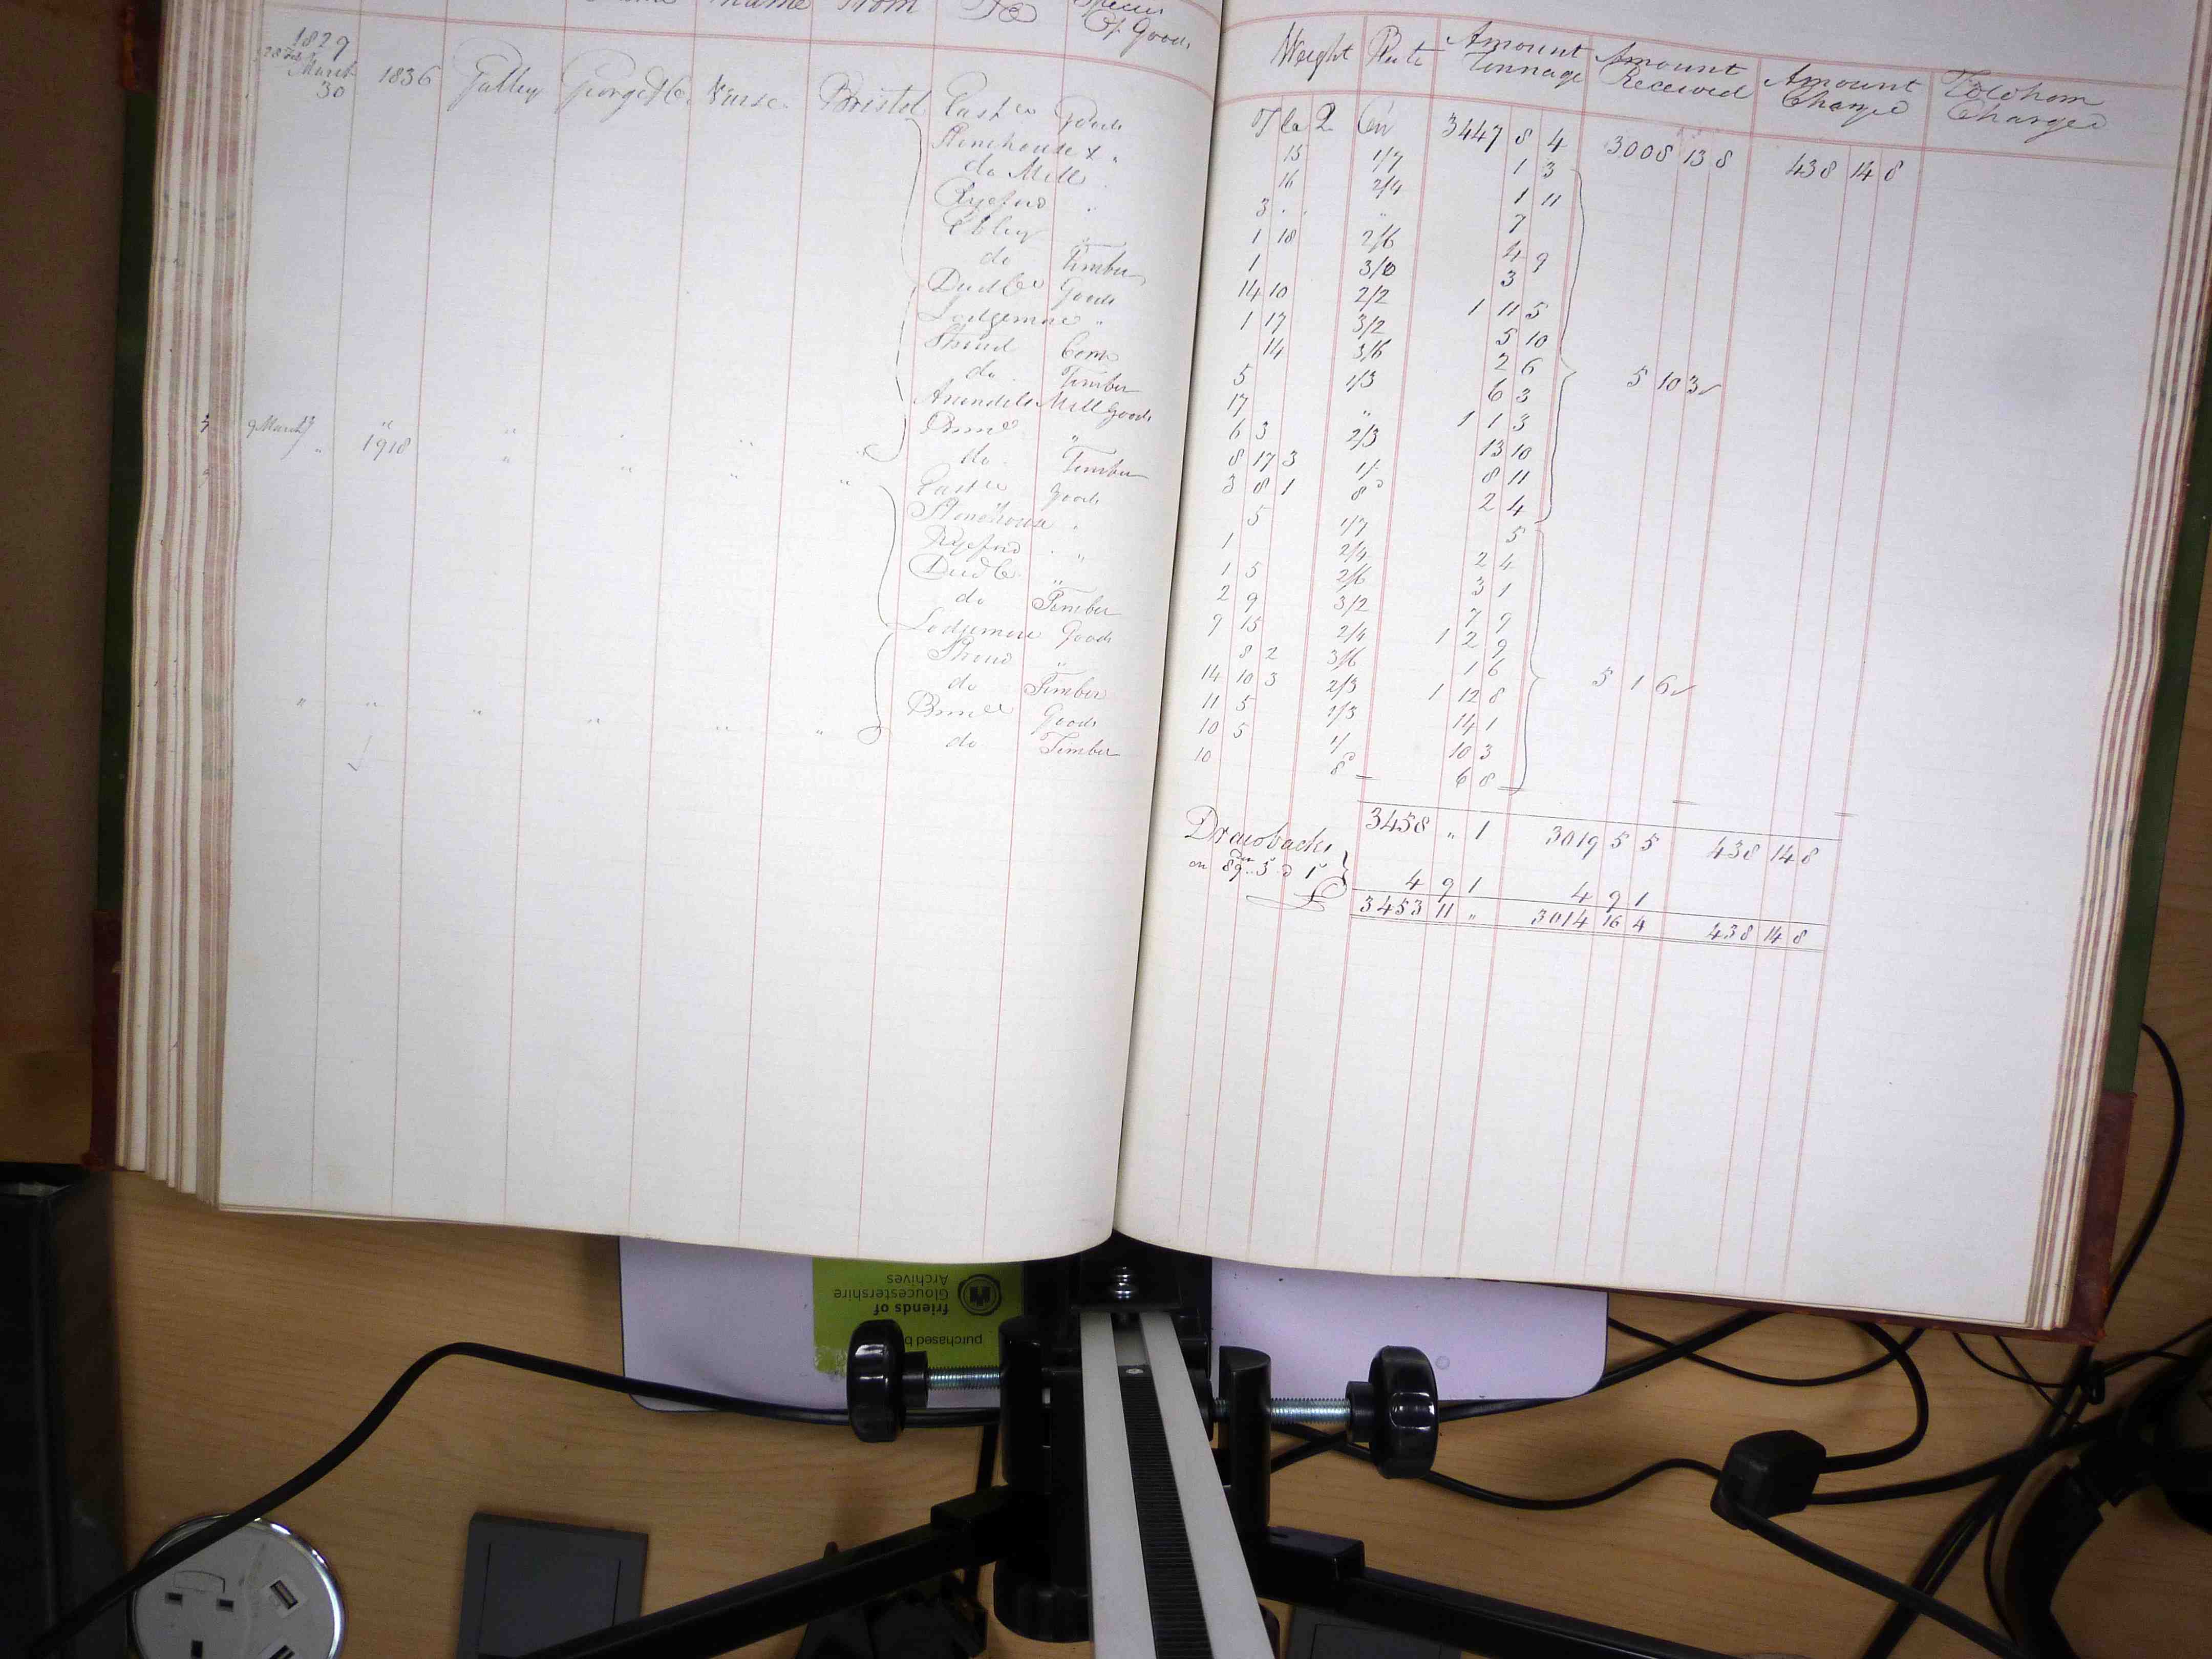 name From To Species
Of Goods
Weight Rate Amount Tonnage Amount Received Amount Charge Chargeo
1829
March
30 1836 George Bristol East Goods
T 2 3447 8 4 3008 13 8 438 14 8
Stonehouse 15 1/7 1 3
do Mill 16 2/4 1 11
Ryeford 3 " 7
Ebley 1 18 2/6 4 9
do Timber 1 3/0 3
Goods 14 10 2/2 1 11 5
Lodgemore " 1 17 3/2 5 10
Stroud Corn 14 3/6 2 6
do Timber 5 1/3 6 3
Arundels Mill Goods 17 " 1 1 3
6 3 2/3 13 10
do Timber 8 17 3 1/- 8 11
3 8 1 8d 2 4
5 10 3
March 1918 " " " "
Goods 5 1/7 5
Stonehouse 1 2/4 2 4
Ryeford " 1 5 2/6 3 1
2 9 3/2 7 9
do Timber 9 15 2/4 1 2 9
Lodgemore Goods 8 2 3/6 1 6
Stroud " 14 10 3 2/3 1 12 8
do Timber 11 5 1/3 14 1
Goods 10 5 1/ 10 3
do Timber 10 8d 6 8
5 1 6
3458 " 1 3019 5 5 438 14 8
Drawbacks
on 89 5 4 9 1 4 9 1
3453 11 " 3014 16 4 438 14 8
purchased b
friends of
Gloucestershire
Archives